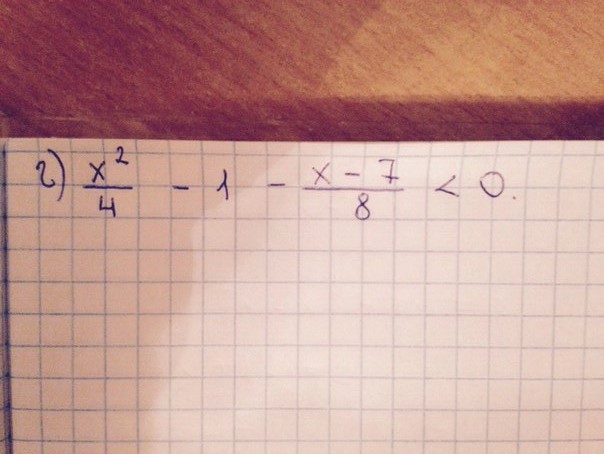 г) x²/4 - 1 - (x - 7)/8 < 0.